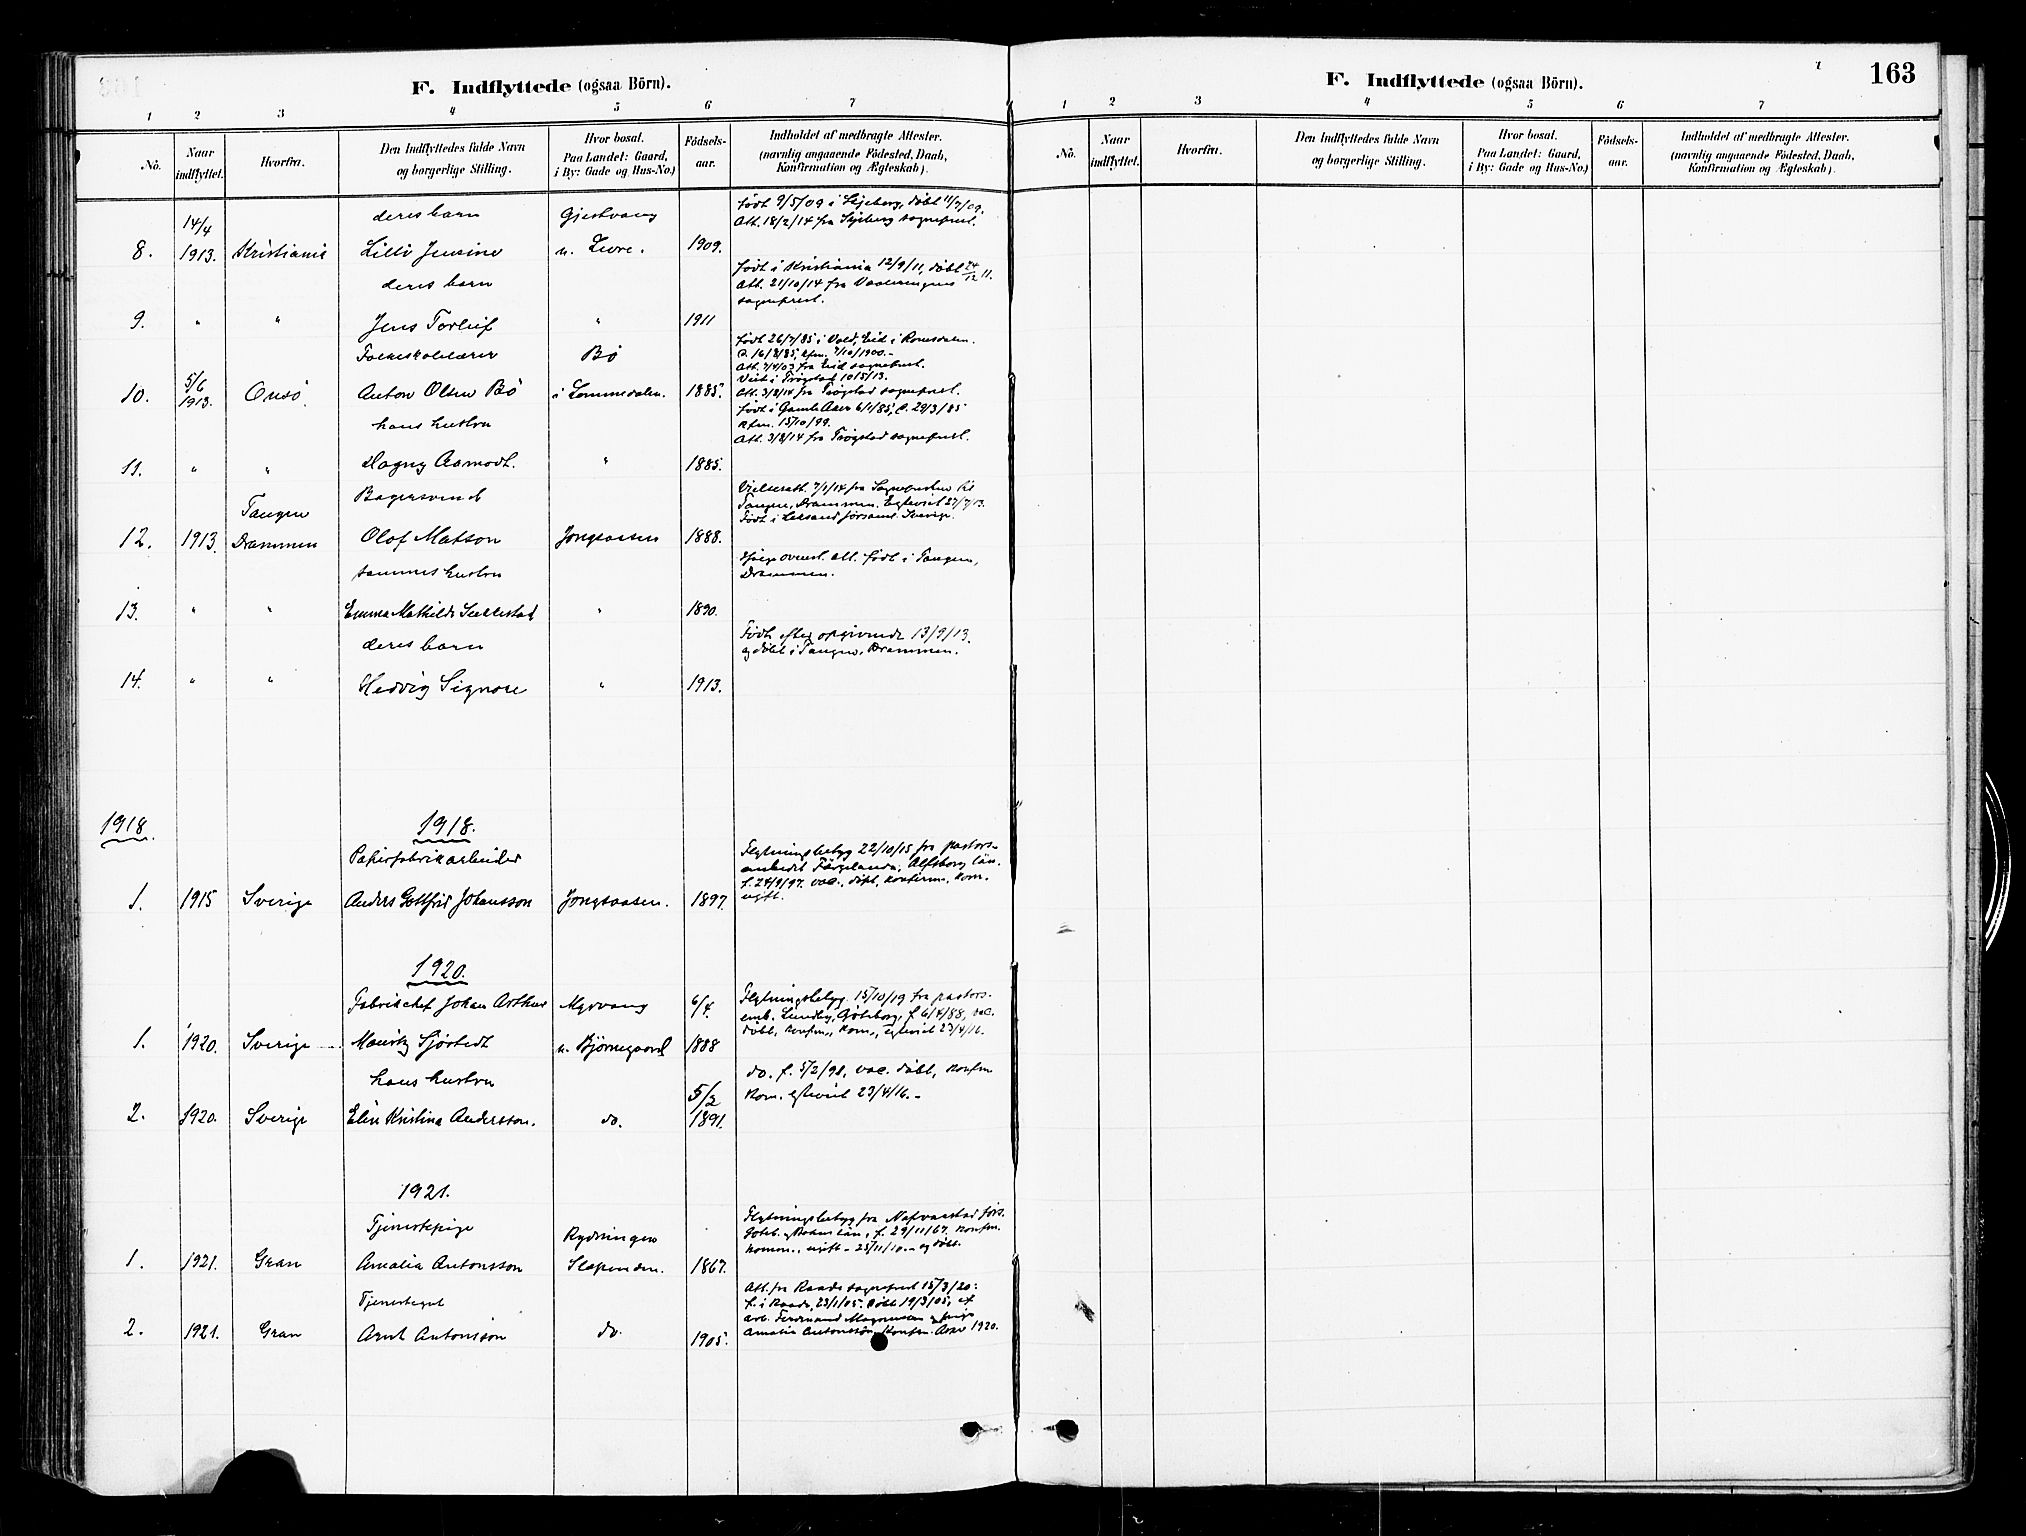 F. Indflyttede (ogsaa Börn).
1 2 3 4 5 6 7
No. Naar indflyttet. Hvorfra. Den Indflyttedes fulde Navn og borgerlige Stilling. Hvor bosat. Paa Landet: Gaard, i By: Gade og Hus-No.) Fødselsaar. Indholdet af medbragte Attester. (navnlig angaaende Fødested, Daab, Konfirmation og Ægteskab).
14/4 deres barn Gjestvang Født 9/5/09 i Skjeberg, døbt 11/7/09.
Att. 18/2/14 fra Skjeberg sogneprest.
8. 1913. Kristiania Lilli Jensine u. Levre. 1909.
deres barn Født i Kristiania 12/9/11, døbt 24/12 11.
Att. 21/10/14 fra Vaalerengens
sogneprest.
9. " " Jens Torleif " 1911
Folkeskolelærer Bø Født 26/7/85 i Vold, Eid i Romsdalen.
D. 16/8/85, kfm. 7/10/1900.-
Att. 7/4/03 fra Eid sogneprest.
Viet i Trøgstad 10/5/13.
10. 5/6 1913. Onsø Anton Olsen Bø i Lommedalen. 1885. Att. 3/8/14 fra Trøgstad sogneprest.
hans hustru Født i Gamle Aker 6/1/85, d. 29/3/85
kfm. 15/10/99.
Att. 3/8/14 fra Trøgstad sogneprest.
11. " " Dagny Aamodt. " 1885.
Tangen Bagersvend Vielsesatt. 7/1/14 fra Sognepresten til
Tangen, Drammen. Egteviet 27/7/13.
Født i Leksand församl. Sverige.
12. 1913. Drammen Olof Matson Jongsaasen 1888.
sammes hustru Ifølge ovenst. att. født i Tangen,
Drammen.
13. " " Emma Mathilde Sællestad " 1890.
deres barn Født efter opgivende 13/9/13.
og døbt i Tangen, Drammen.
14. " " Hedvig Signore " 1913.
1918. 1918.
Papirfabrikarbeider Flytningsbetyg 22/10/15 fra pastors-
embedet Färgelanda, Alfsborg län.
f. 24/9/97. vac., døbt, konfirm., kom.
1. 1915 Sverige Anders Gottfrid Johansson Jongsaasen. 1897. ugift.
1920.
Fabrikchef Johan Arthur Myrvang 6/4. Flytningsbetyg. 15/10/19 fra pastors-
emb. Lundby, Göteborg, f. 6/4/88, vac.
døbt, konfm., kom., egteviet 23/4/16.
1. 1920. Sverige Mauritz Sjöstedt u. Bjørnegaard 1888
hans hustru 5/2 do. f. 5/2/91, vac. døbt, konfm
kom. egteviet 23/4/16.-
2. 1920. Sverige Elin Kristina Andersson. do. 1891.
1921.
Tjenestepige Rydningen Flytningsbetyg fra Nafvarstad förs.
Göteb. og Bohus län, f. 29/11/67. konfm.
komm., ugift - 25/11/10.- og døbt.
1. 1921. Gran Amalia Antonsson Slependen. 1867.
Tjenestegut Att. fra Raade sogneprest 15/3/20:
f. i Raade, 23/1/05. døbt 19/3/05, af
arb. Ferdinand Magnussen og pige
2. 1921. Gran Arnt Antonsson do. 1905. Amalia Antonsson. Konfm. Aker 1920.
F. Indflyttede (ogsaa Börn). 163
1 2 3 4 5 6 7
No. Naar indflyttet. Hvorfra. Den Indflyttedes fulde Navn og borgerlige Stilling. Hvor bosat. Paa Landet: Gaard, i By: Gade og Hus-No.) Fødselsaar. Indholdet af medbragte Attester. (navnlig angaaende Fødested, Daab, Konfirmation og Ægteskab).